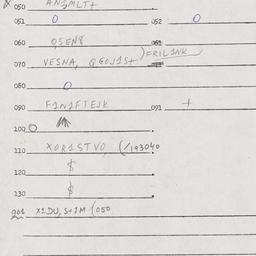 050 AN3MLT+
051 0 052 0
060 QSEN8 061
070 VESNA, QGOJ1S+ )FRIL1NK
080 0
090 F1N1FTEJK 091 +
100 0
110 XOR1STVO, (/193040
120 $
130 $
901 X1DU, S+1M (050